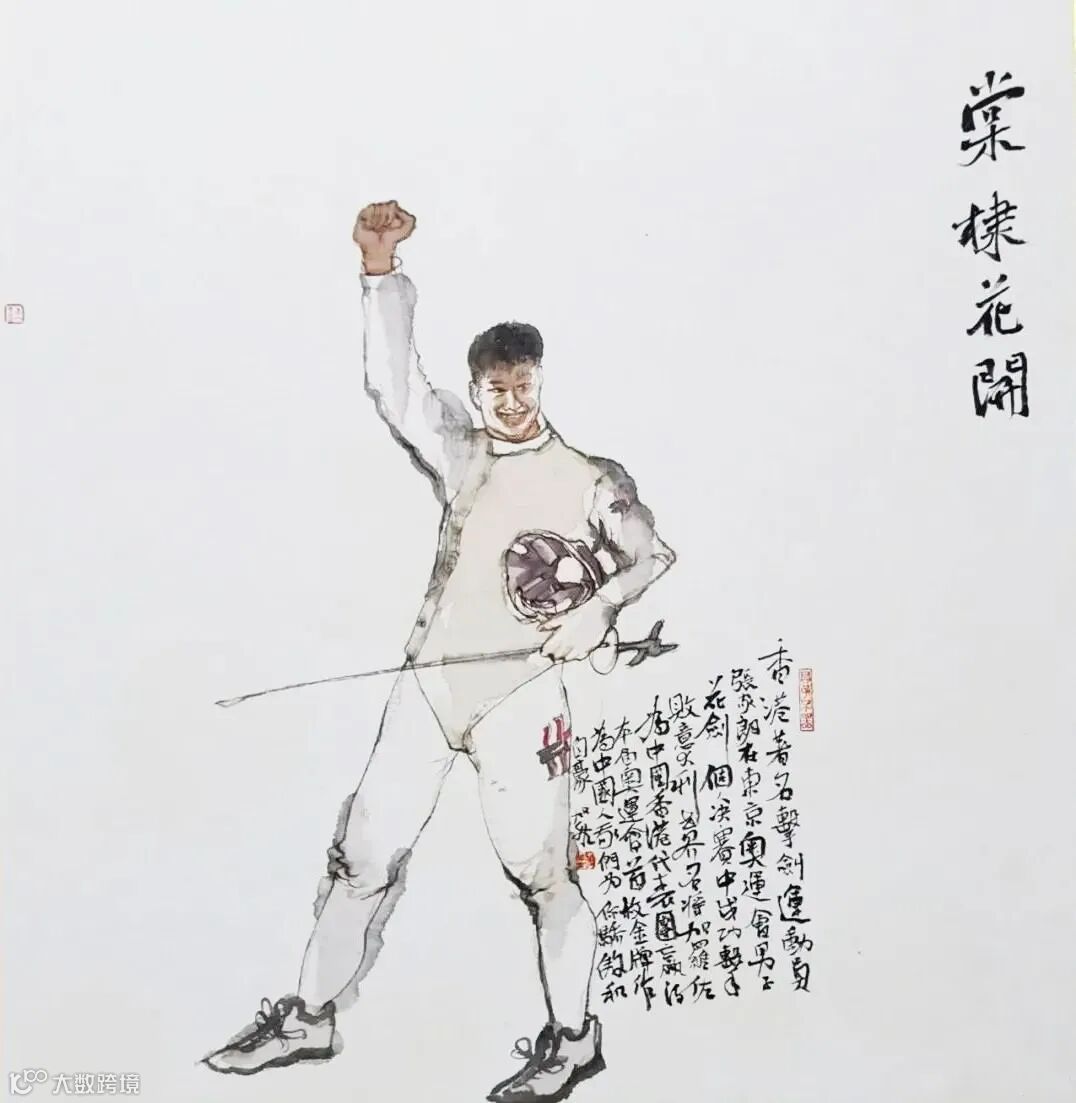 棠棣花開
香港著名擊劍運動員
張家朗在東京奧運會男子
花劍個人决賽中成功擊
敗意大利世界名將加羅佐
為中国香港代表團贏得
本屆奧運會首枚金牌作
為中國人我們为你驕傲和
自豪
大数跨境